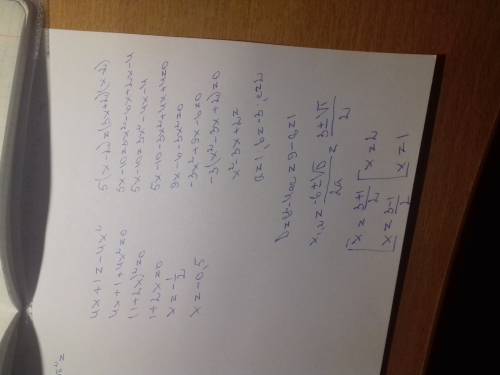 4x+1=-4x²
4x+1+4x²=0
(1+2x)²=0
1+2x=0
x=-1/2
x=-0,5
5(x-2)=(3x+2)(x-2)
5x-10=3x²-6x+2x-4
5x-10=3x²-4x-4
5x-10-3x²+4x+4=0
9x-6-3x²=0
-3x²+9x-6=0
-3(x²-3x+2)=0
x²-3x+2=
a=1, b=-3, c=2
D=b²-4ac=9-8=1
x₁,₂=(-b±√D)/2a=(3±√1)/2
[x=(3+1)/2 [x=2
x=(3-1)/2 x=1